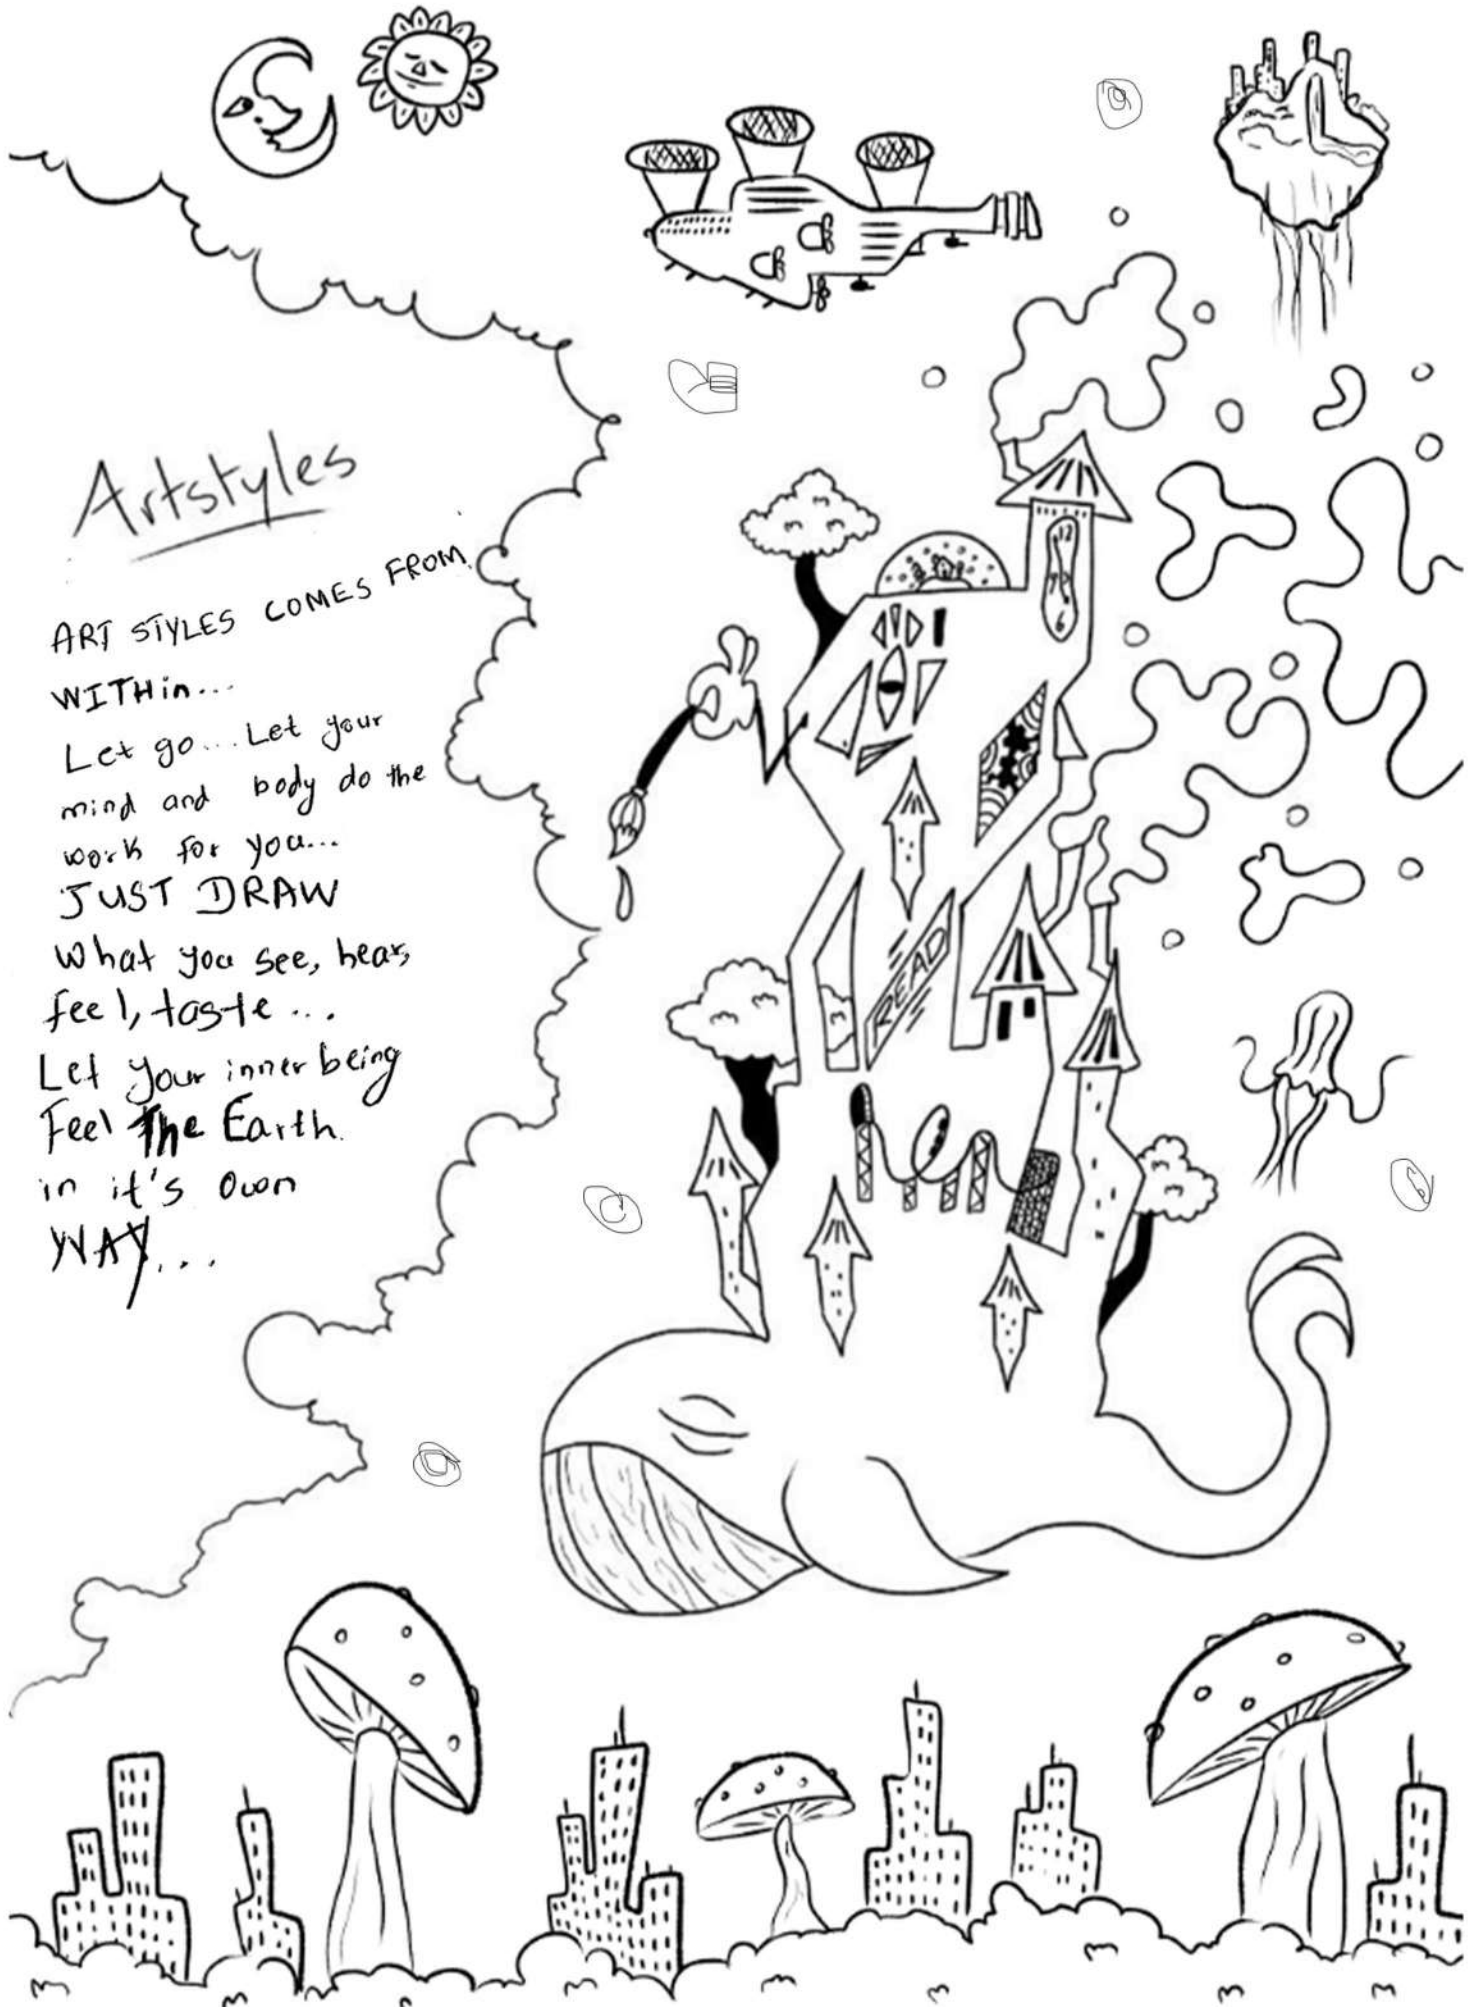 Artstyles
ART STYLES COMES FROM
WITHin...
Let go... Let your
mind and body do the
work for you...
JUST DRAW
What you see, hear,
feel, taste...
Let your inner being
Feel The Earth.
in it's own
WAY...
12
6
READ